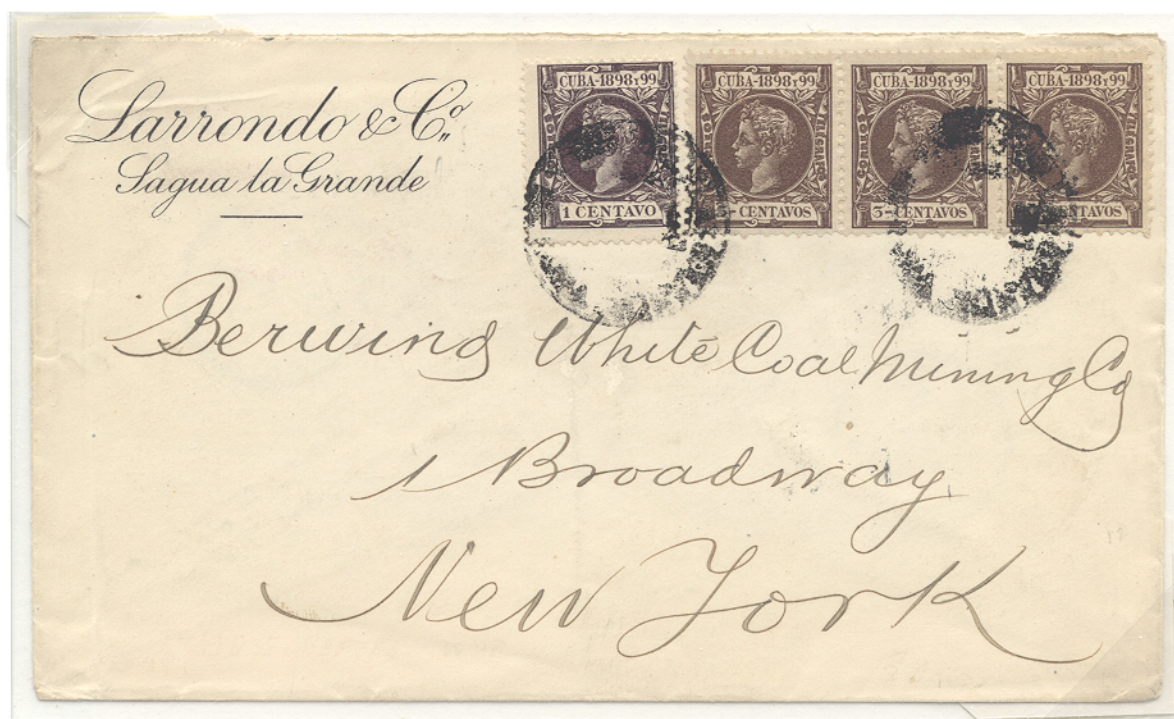 Larrondo & Co.
Sagua la Grande
CUBA-1898 Y 99
CORREOS
1 CENTAVO
CUBA-1898 Y 99
CORREOS
3-CENTAVOS
CUBA-1898 Y 99
CORREOS
3-CENTAVOS
CUBA-1898 Y 99
CENTAVOS
Berwind White Coal Mining Co
1 Broadway
New York